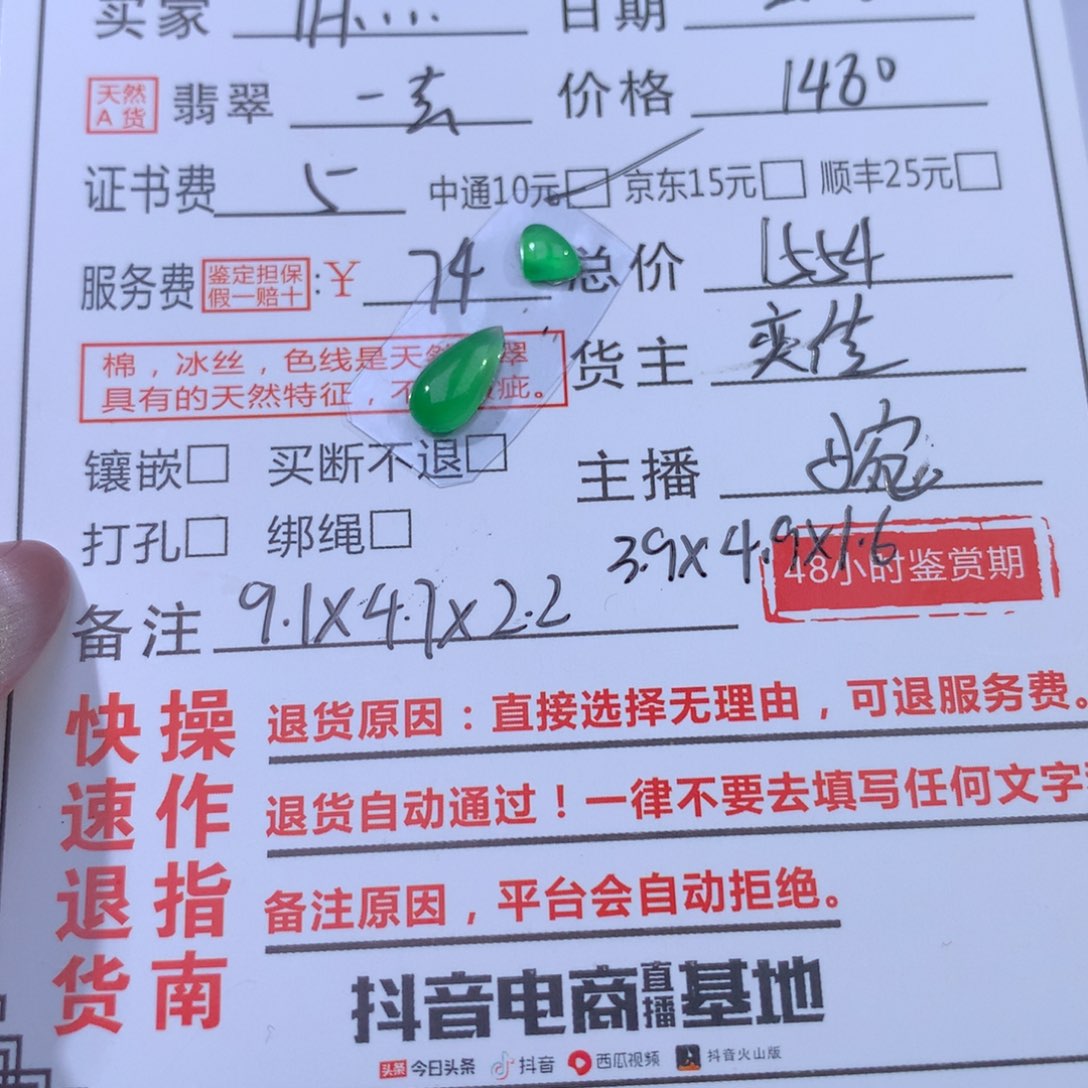 买家 日期
天然A货 翡翠 价格 1480
证书费 5 中通10元 京东15元 顺丰25元
服务费 鉴定担保 假一赔十 :¥ 74 总价 1554
棉，冰丝，色线是天然翡翠
具有的天然特征，不 疵。
货主 奕佳
镶嵌 买断不退
主播 婉
打孔 绑绳
3.9x4.9x1.6
48小时鉴赏期
备注 9.1x4.7x2.2
快速退货
操作指南
退货原因：直接选择无理由，可退服务费。
退货自动通过！一律不要去填写任何文字
备注原因，平台会自动拒绝。
抖音电商直播基地
头条 今日头条 抖音 西瓜视频 抖音火山版